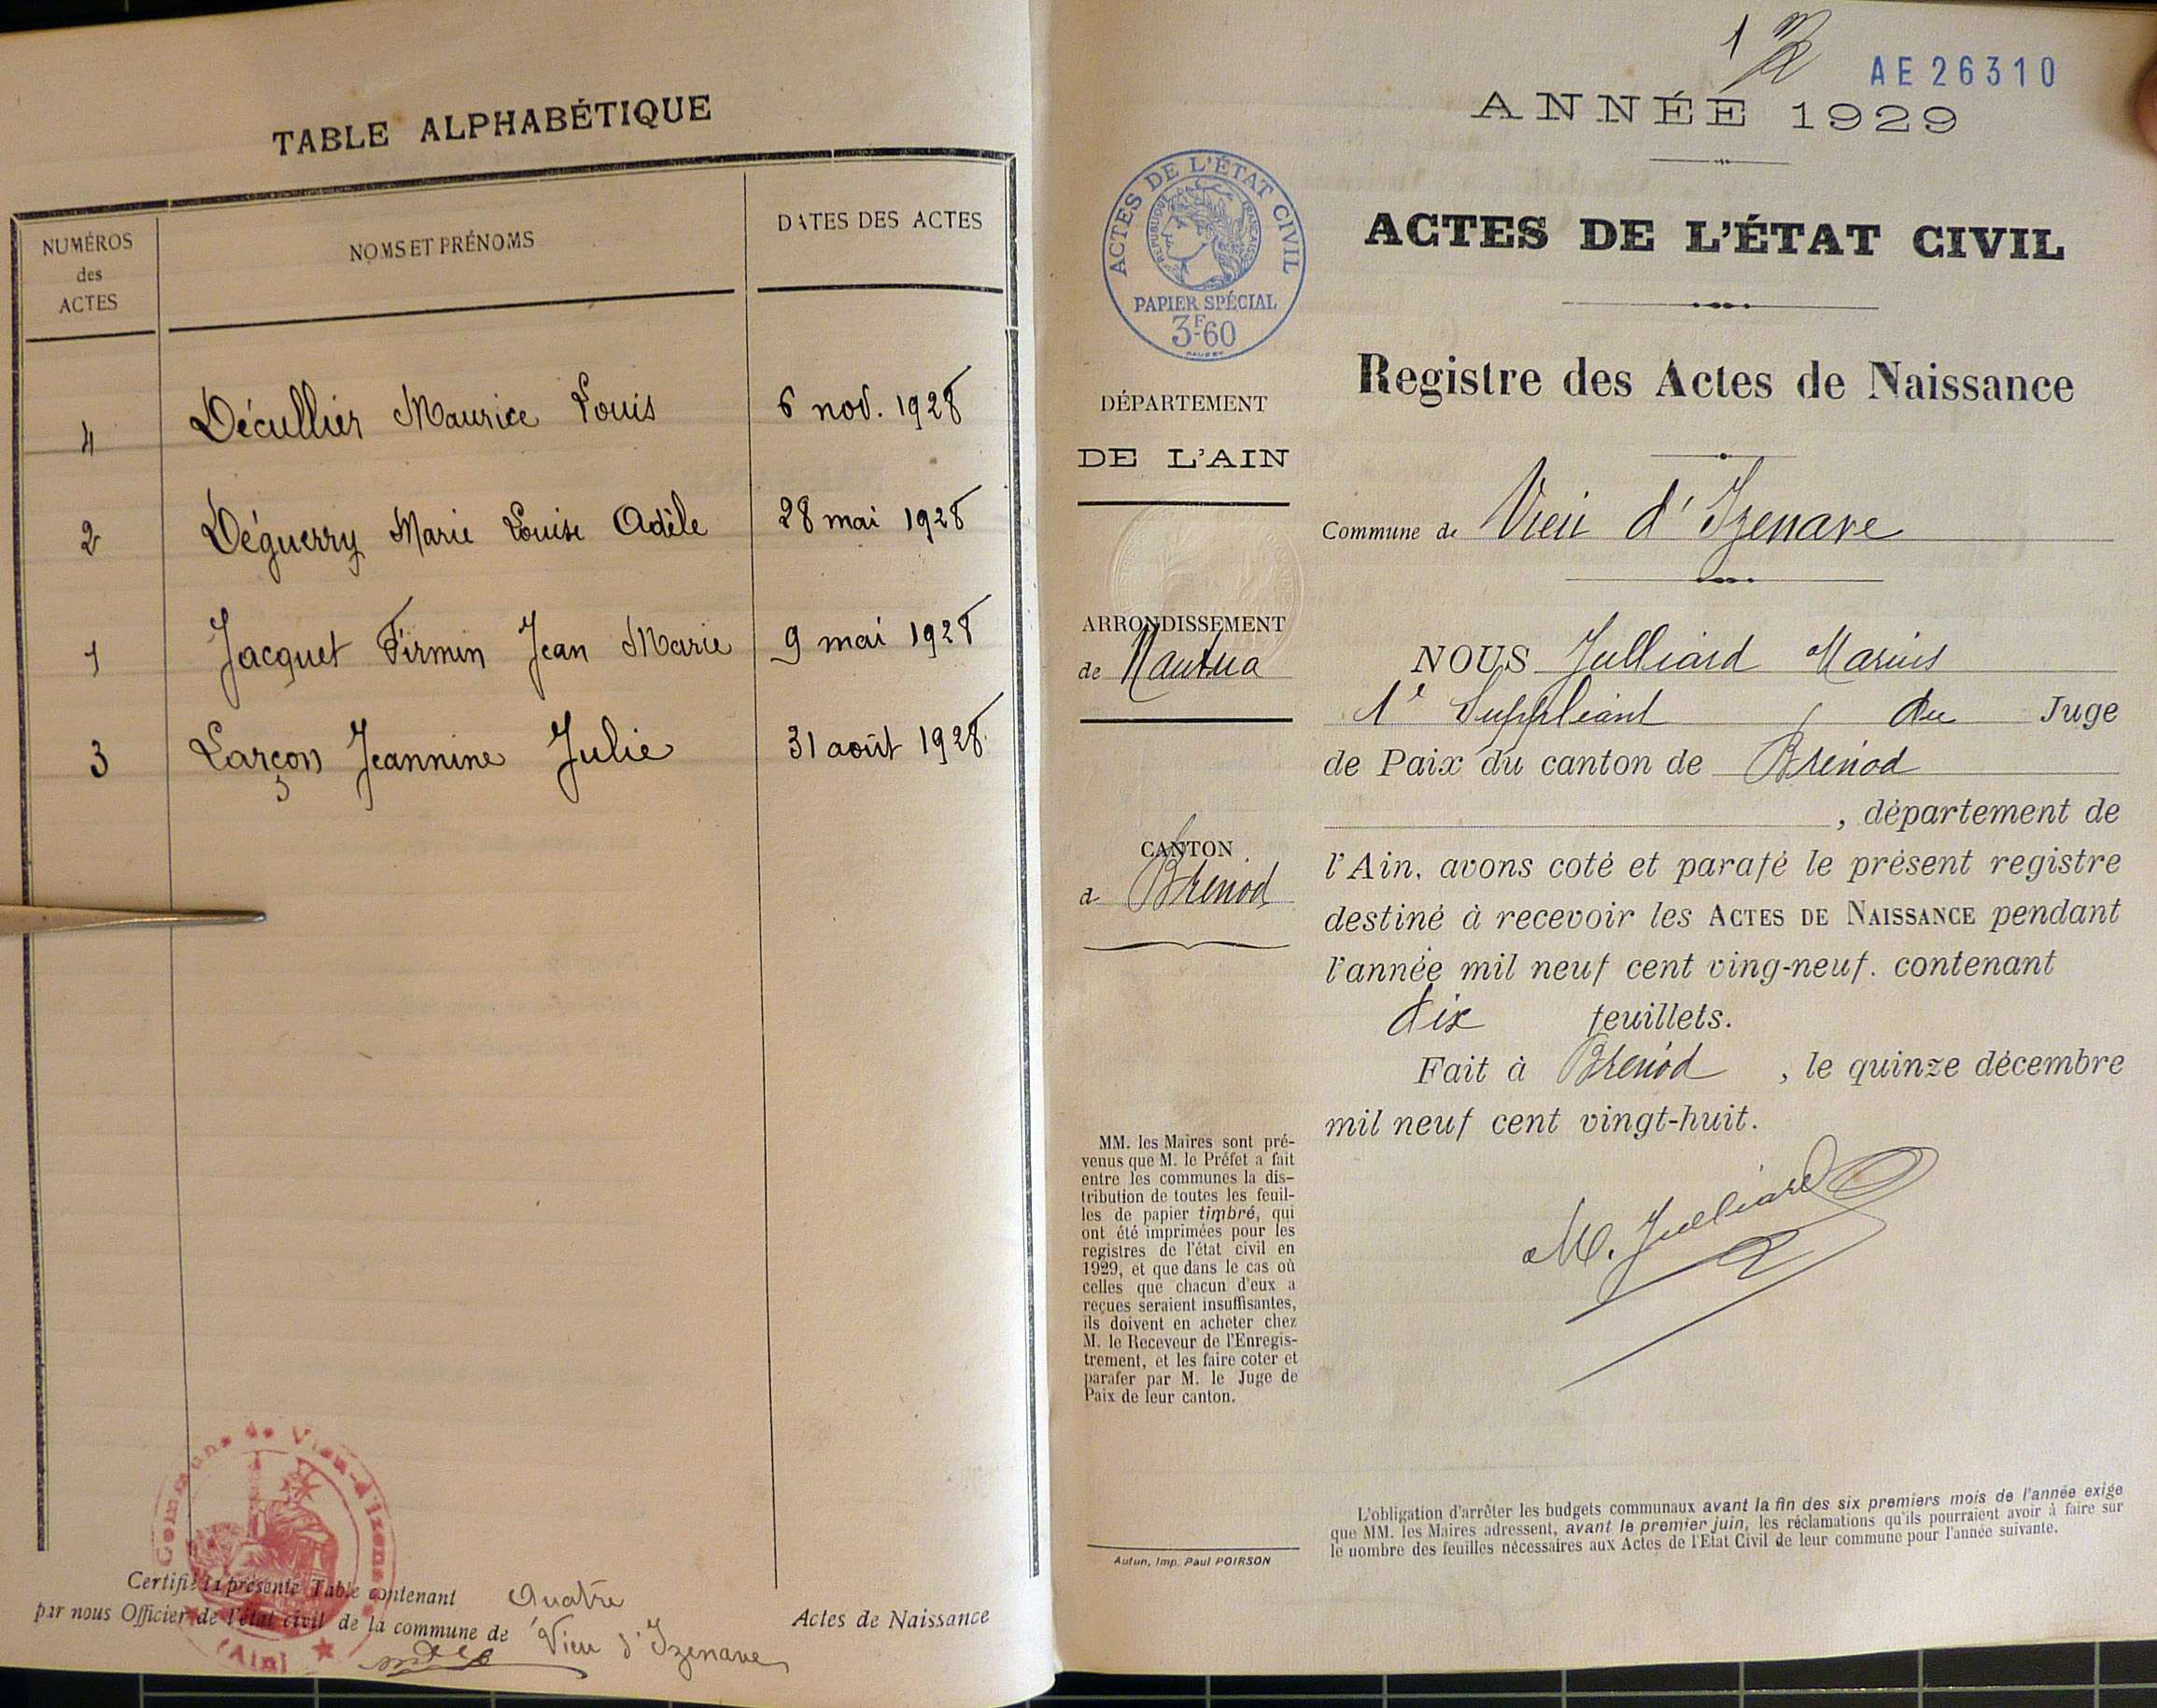 TABLE ALPHABÉTIQUE
NUMÉROS
des
ACTES
NOMS ET PRÉNOMS
DATES DES ACTES
4 Décullier Maurice Louis 6 nov. 1928
2 Déguerry Marie Louise Adèle 28 mai 1928
1 Jacquet Firmin Jean Marie 9 mai 1928
3 Larçon Jeannine Julie 31 août 1928
Commune de Vieu-d'Izenave
(Ain)
Certifié la présente Table contenant Quatre Actes de Naissance
par nous Officier de l'état civil de la commune de Vieu d'Izenave
1
AE26310
ANNÉE 1929
ACTES DE L'ÉTAT CIVIL
RÉPUBLIQUE FRANÇAISE
PAPIER SPÉCIAL
3F60
ACTES DE L'ÉTAT CIVIL
Registre des Actes de Naissance
DÉPARTEMENT
DE L'AIN
Commune de Vieu d'Izenave
ARRONDISSEMENT
de Nantua
CANTON
d Brénod
NOUS Julliard Marius
1e Suppléant du Juge
de Paix du canton de Brénod
, département de
l'Ain, avons coté et parafé le présent registre
destiné à recevoir les ACTES DE NAISSANCE pendant
l'année mil neuf cent ving-neuf. contenant
dix feuillets.
Fait à Brénod , le quinze décembre
mil neuf cent vingt-huit.
M. Julliard
MM. les Maires sont pré-
venus que M. le Préfet a fait
entre les communes la dis-
tribution de toutes les feuil-
les de papier timbré, qui
ont été imprimées pour les
registres de l'état civil en
1929, et que dans le cas où
celles que chacun d'eux a
reçues seraient insuffisantes,
ils doivent en acheter chez
M. le Receveur de l'Enregis-
trement, et les faire coter et
parafer par M. le Juge de
Paix de leur canton.
Autun, Imp. Paul POIRSON
L'obligation d'arrêter les budgets communaux avant la fin des six premiers mois de l'année exige
que MM. les Maires adressent, avant le premier juin, les réclamations qu'ils pourraient avoir à faire sur
le nombre des feuilles nécessaires aux Actes de l'Etat Civil de leur commune pour l'année suivante.